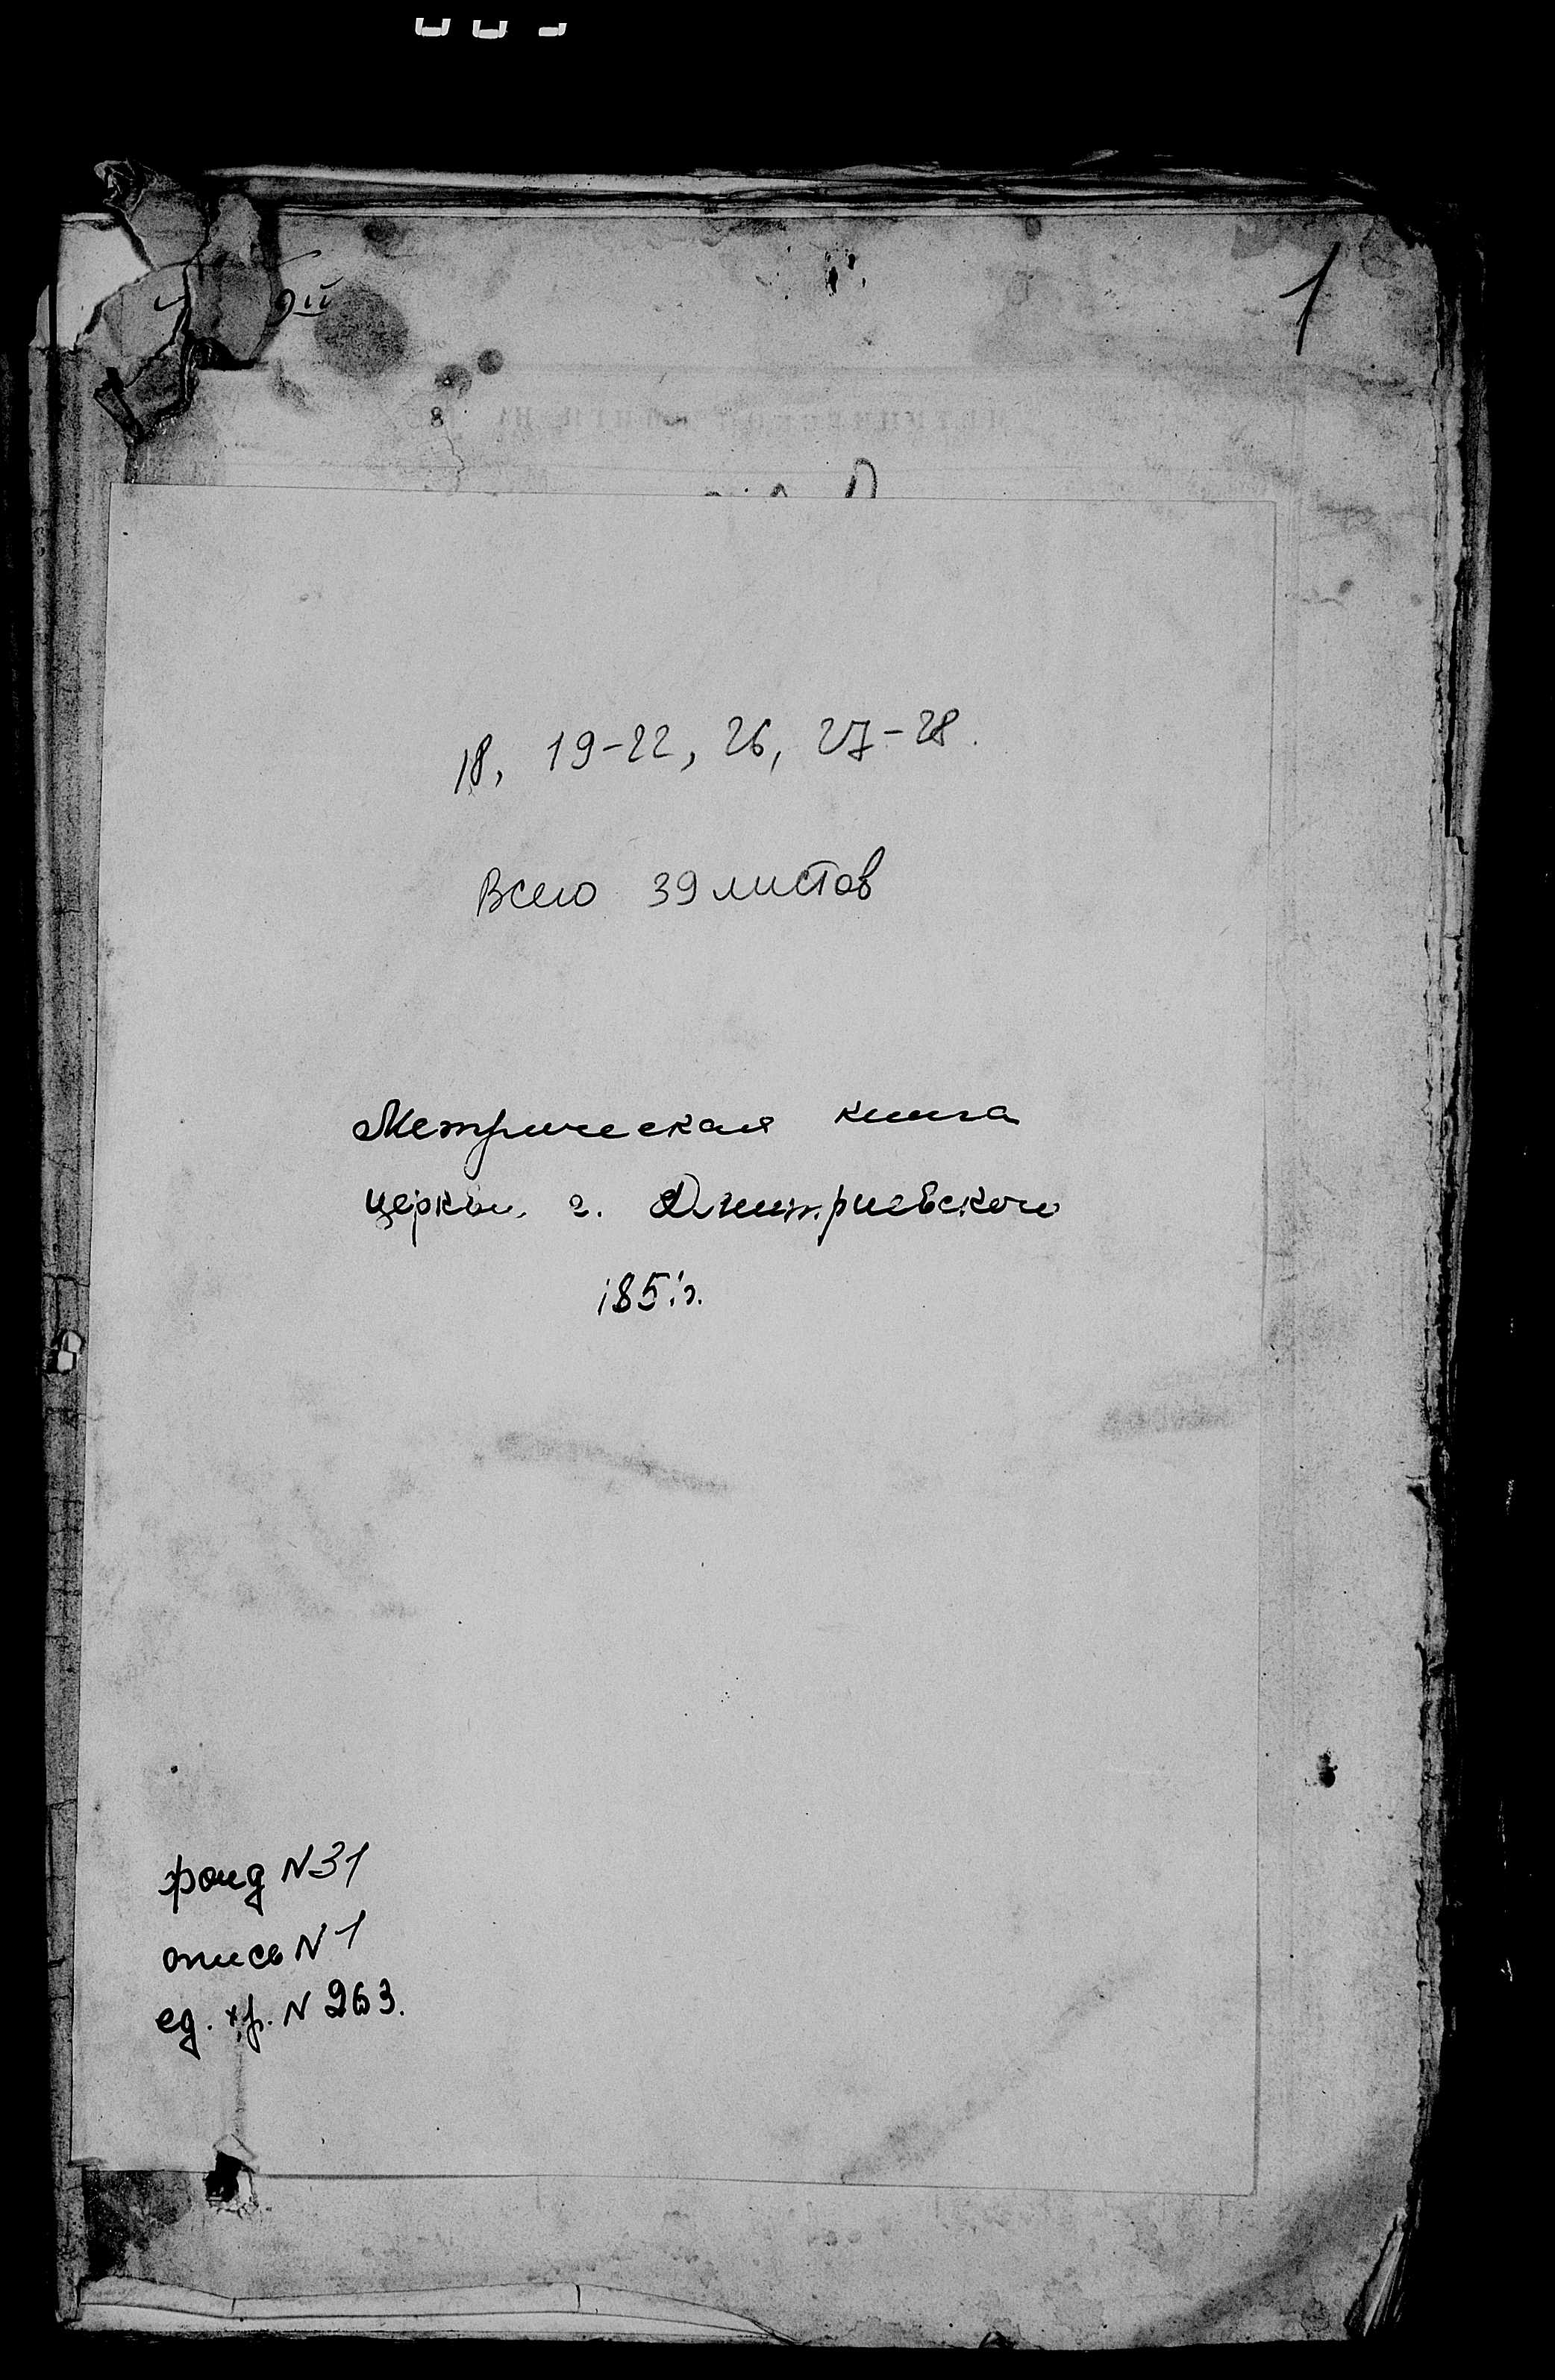 1
18, 19-22, 26, 27-28.
Всего 39 листов
Метрическая книга
церкви г. Дмитриевского
1851г.
фонд N31
опись N1
ед. хр. N 263.